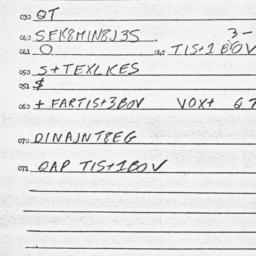 030 QT
040 SEK8MIN8J3S. 3-
041 O 042 TIS+1BOV
050 S+TEXLKES
051 $
060 + FARTIS+3BOV VOX+ 67
070 DINAJNT8EG
071 QAP TIS+1BOV